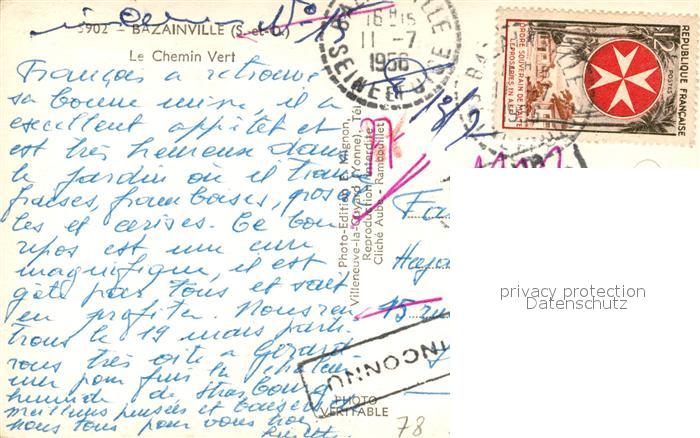 5902 - BAZAINVILLE (S.-et-O.)
Le Chemin Vert
François a retrouvé
sa bonne mine il a
excellent appétit et
est très heureux dans
le jardin où il trouve
fraises, framboises, groseil
les et cerises. Ce bon
repos est une cure
magnifique, il est
gâté par tous et sait
en profiter. Nous ren
trons le 19 mais parti
rons très vite à Gérard
mer pour fuir la chaleur
humide de Strasbourg
meilleures pensées et baisers de
nous tous pour vous
PHOTO
VERITABLE
78
Photo-Edition E. Mignon,
Villeneuve-la-Guyard (Yonne), Tél.
Reproduction Interdite
Cliché Aubé - Rambouillet
16 H 15
11 - 7
1956
BAZAINVILLE
SEINE ET OISE
12/7
15
INCONNU
REPUBLIQUE FRANÇAISE
POSTES
12F
ORDRE SOUVERAIN DE MALTE
LEPROSERIES EN AFRIQUE
privacy protection
Datenschutz